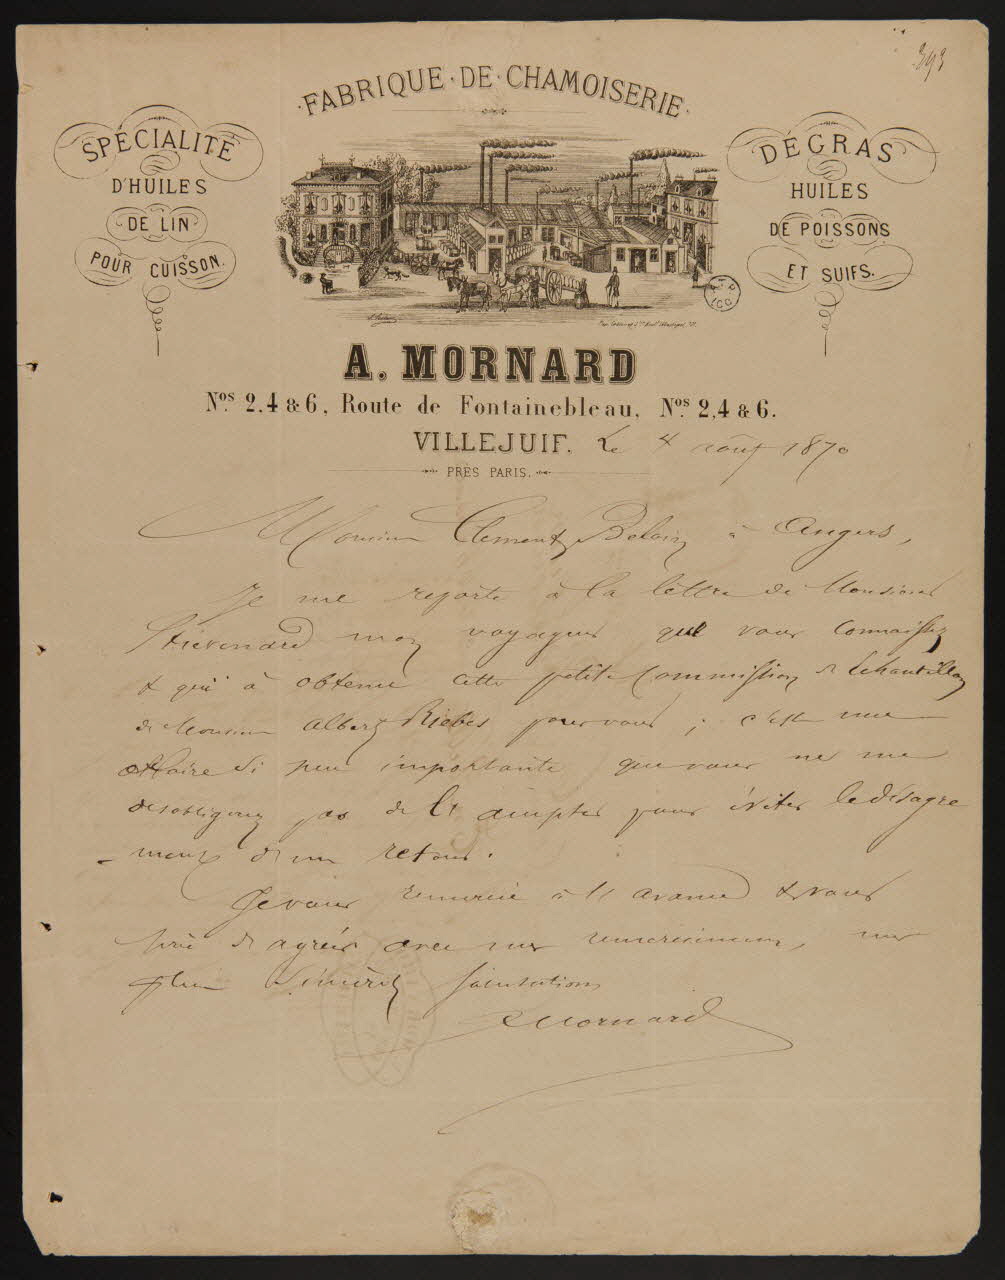 393
FABRIQUE · DE · CHAMOISERIE
SPÉCIALITÉ
D'HUILES
DE LIN
POUR CUISSON.
DÉGRAS
HUILES
DE POISSONS
ET SUIFS.
A. MORNARD
Nos. 2.4 & 6, Route de Fontainebleau, Nos. 2,4 & 6.
VILLEJUIF. Le 4 août 1870
PRÈS PARIS.
Monsieur Clement à Angers,
Je me reporte à la lèttre de Monsieur
mon voyageur que vous connaissez
& qui à obtenu cette petite Commission de
de Monsieur Albert pour vous ; c'est une
affaire si peu importante que vous ne me
desobligerez pas de l'accepter pour éviter le désagré
- ment d'un retour.
Je vous remercie à l'avance & vous
prie d'agréer avec mes remerciements, mes
plus sincères salutations
Mornard